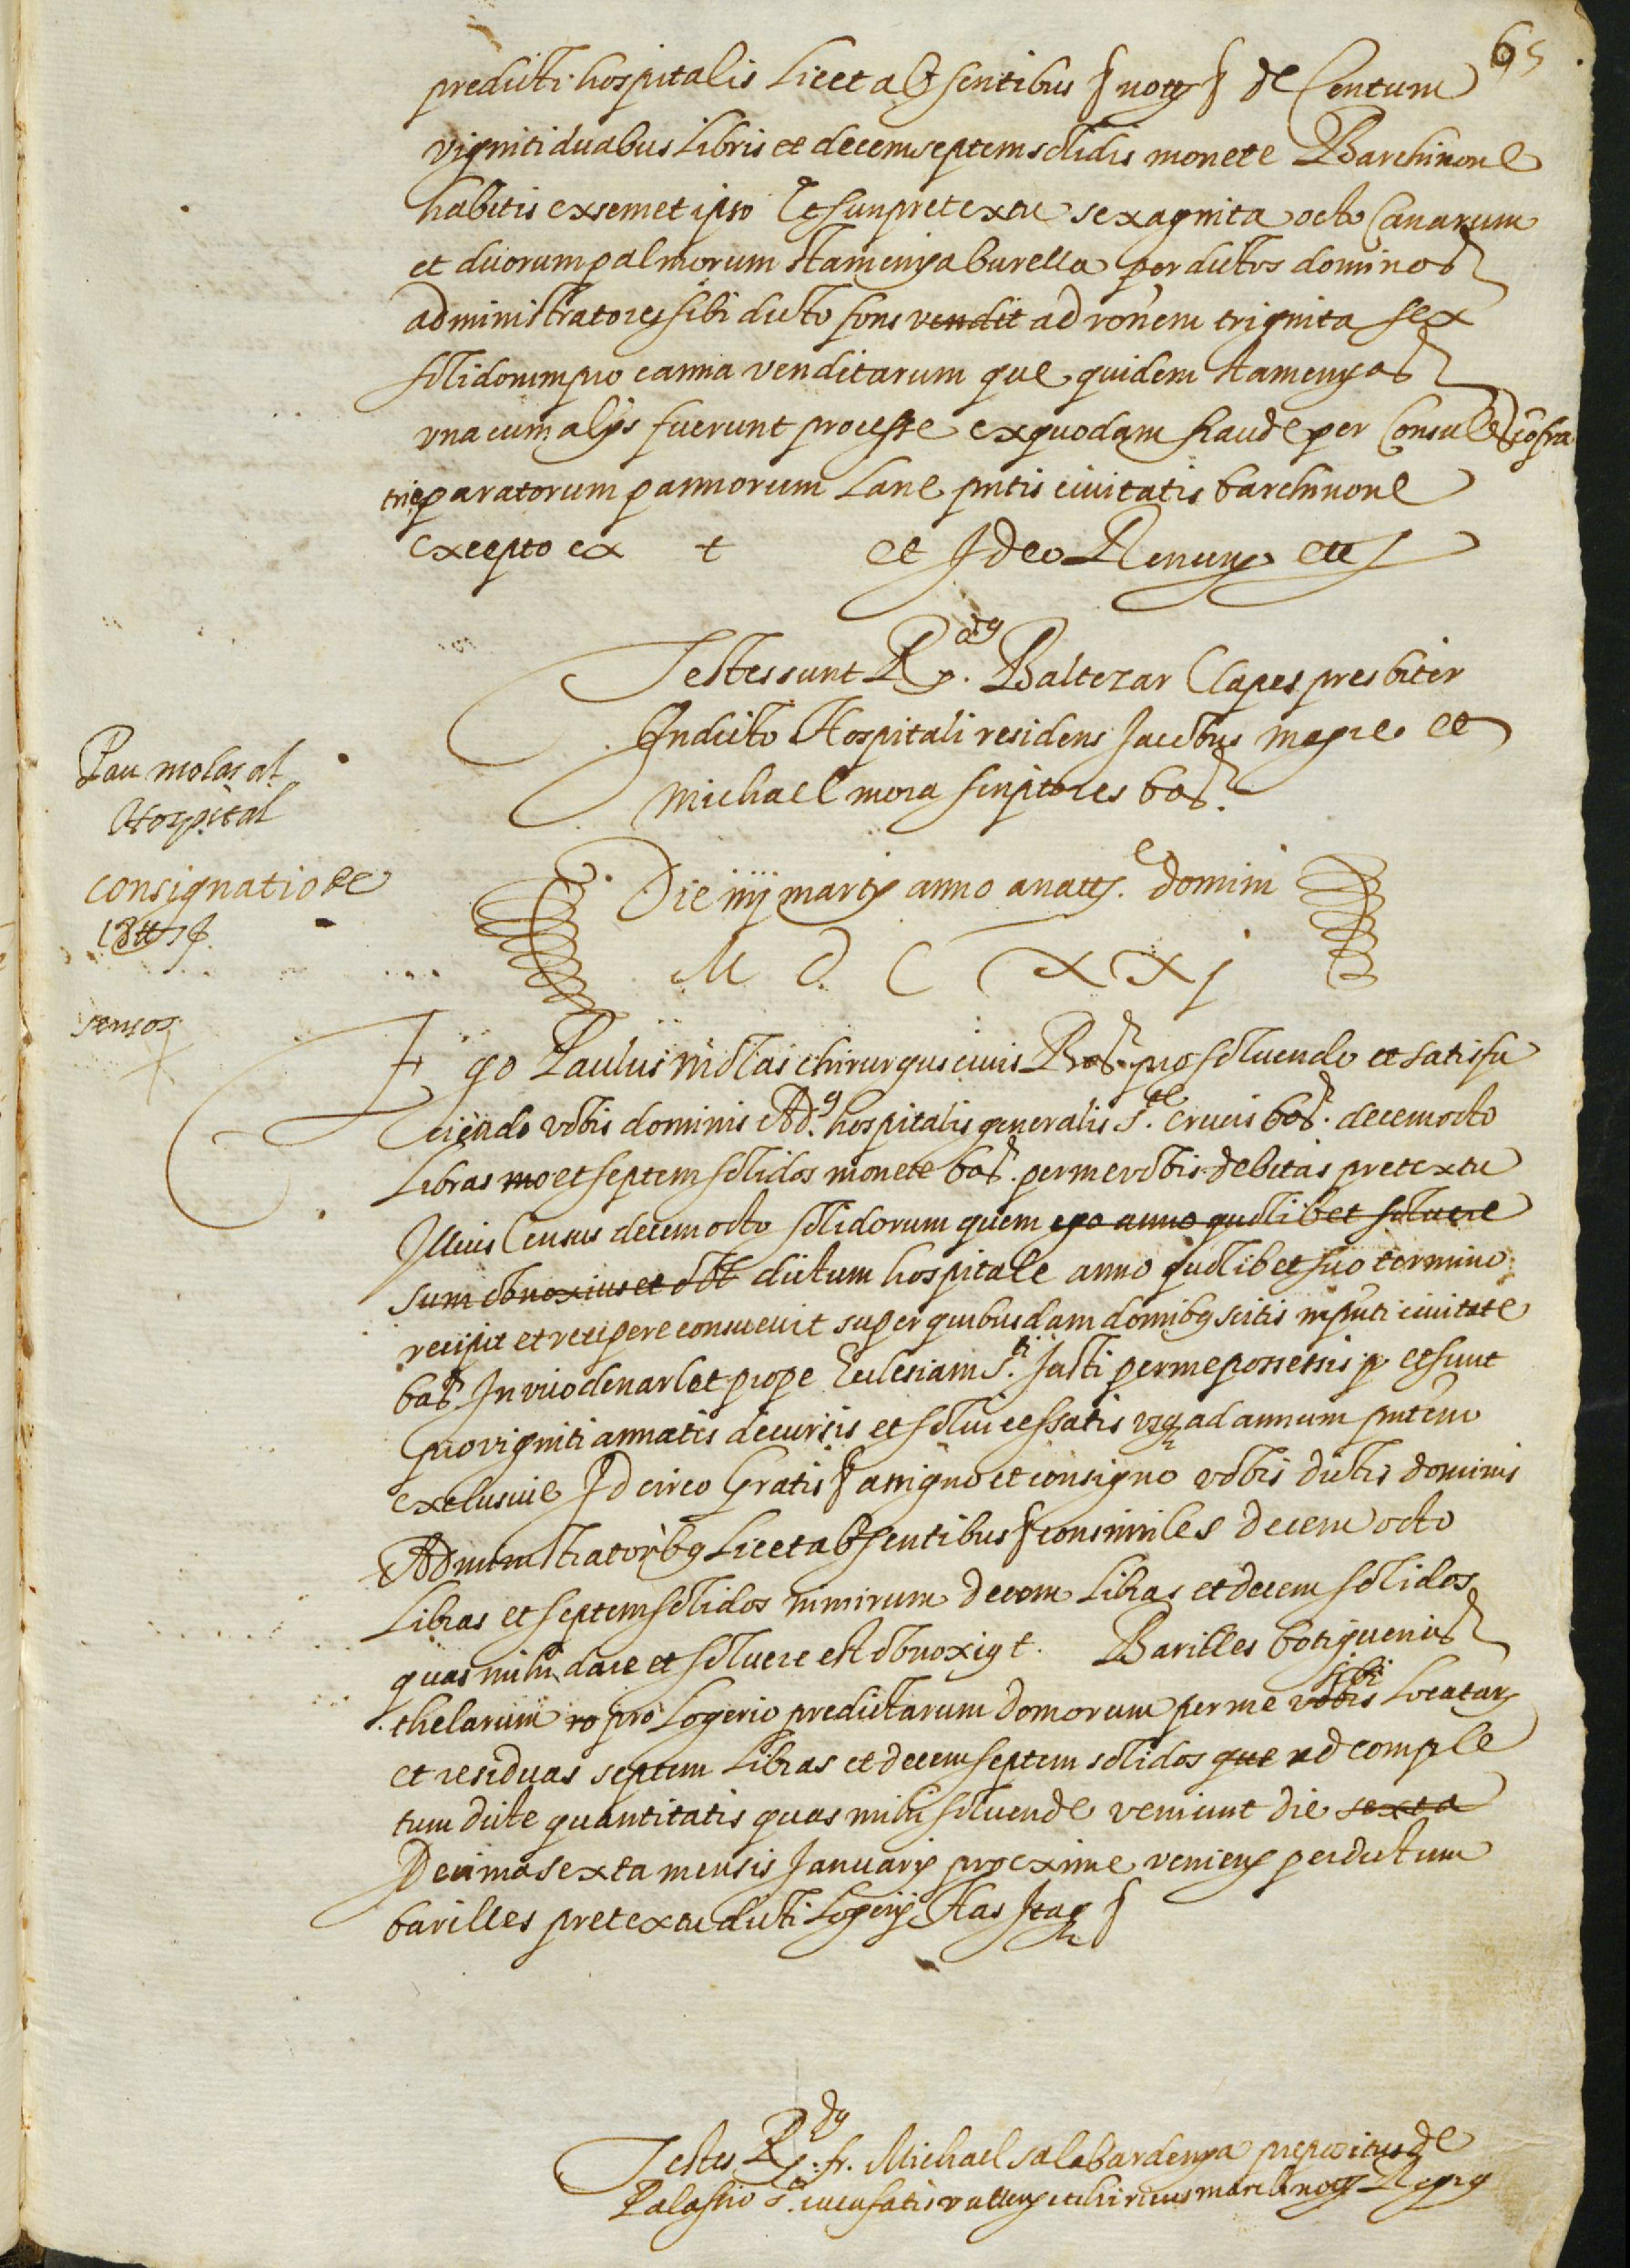 65
predicti hospitalis Licet absentibus § noty § de Centum
vigniti duabus Libris et decem septem solidis monete Barchinone
habitis ex semet ipso Et sun pretextu sexagnita octo Canarum
et duorum palmorum stamenya burella per dictos dominos
administratores sibi dicto fons vendit ad ronem trignita sex
solidorum pro canna venditarum que quidem stamenyas
una cum alys fuerunt processe ex quodam fraude per Consules cofra
trie paratorum pannorum Lane pntis civitatis barchinone
excepto ex t et Ideo Renuny etc
Testes sunt Rdus. Baltezar Clapes presbiter
In dicto Hospitali residens Jacobus magre et
michael mora scriptores bar.
Pau molas al
Hospital
consignatio de
18 tt 7 s.
censos
Die iiij marty anno a naty. domini
M D C XXj
Ego Paulus molas chirurgus civis Bar. pro solvendo et satisfa
ciendo vobis dominis Ad. hospitalis generalis Ste. crucis bar. decem octo
Libras mo et septem solidos monete bar. per me vobis debitas pretextu
Illius Census decem octo solidorum quem ego anno quolibet solvere
sum obnoxius et dbt dictum hospitale anno quolibet suo termino
recipit et recipere consuevit super quibusdam domibq sitis in pnti civitate
bar. In vico den arlet prope Eclesiam Sti. Justi per me possessis p et sunt
pro vigniti annatis decursis et solvi cessatis usq ad annum pntem
exclusive Id circo Gratis § assigno et consigno vobis dictis dominis
Administratoribq Licet absentibus § consimiles decem octo
Libras et septem solidos nimirum decem Libras et decem solidos
quas mihi dare et solvere est obnoxiq t. Barilles botiguerius
thelarum ro pro Logerio predictarum domorum per me vobis sibi Locatary
et residuas septem Libras et decem septem solidos que ad comple
tum dicte quantitatis quas mihi solvende veniunt die sexta
Decima sexta mensis January proxime venieny per dictum
barilles pretextu dicti Logery Has Itaq §
Testes Rdus. fr. Michael salabardenya prepositus de
Palassio Sti. cucufatis vallensy et hironimus march noty Regiq